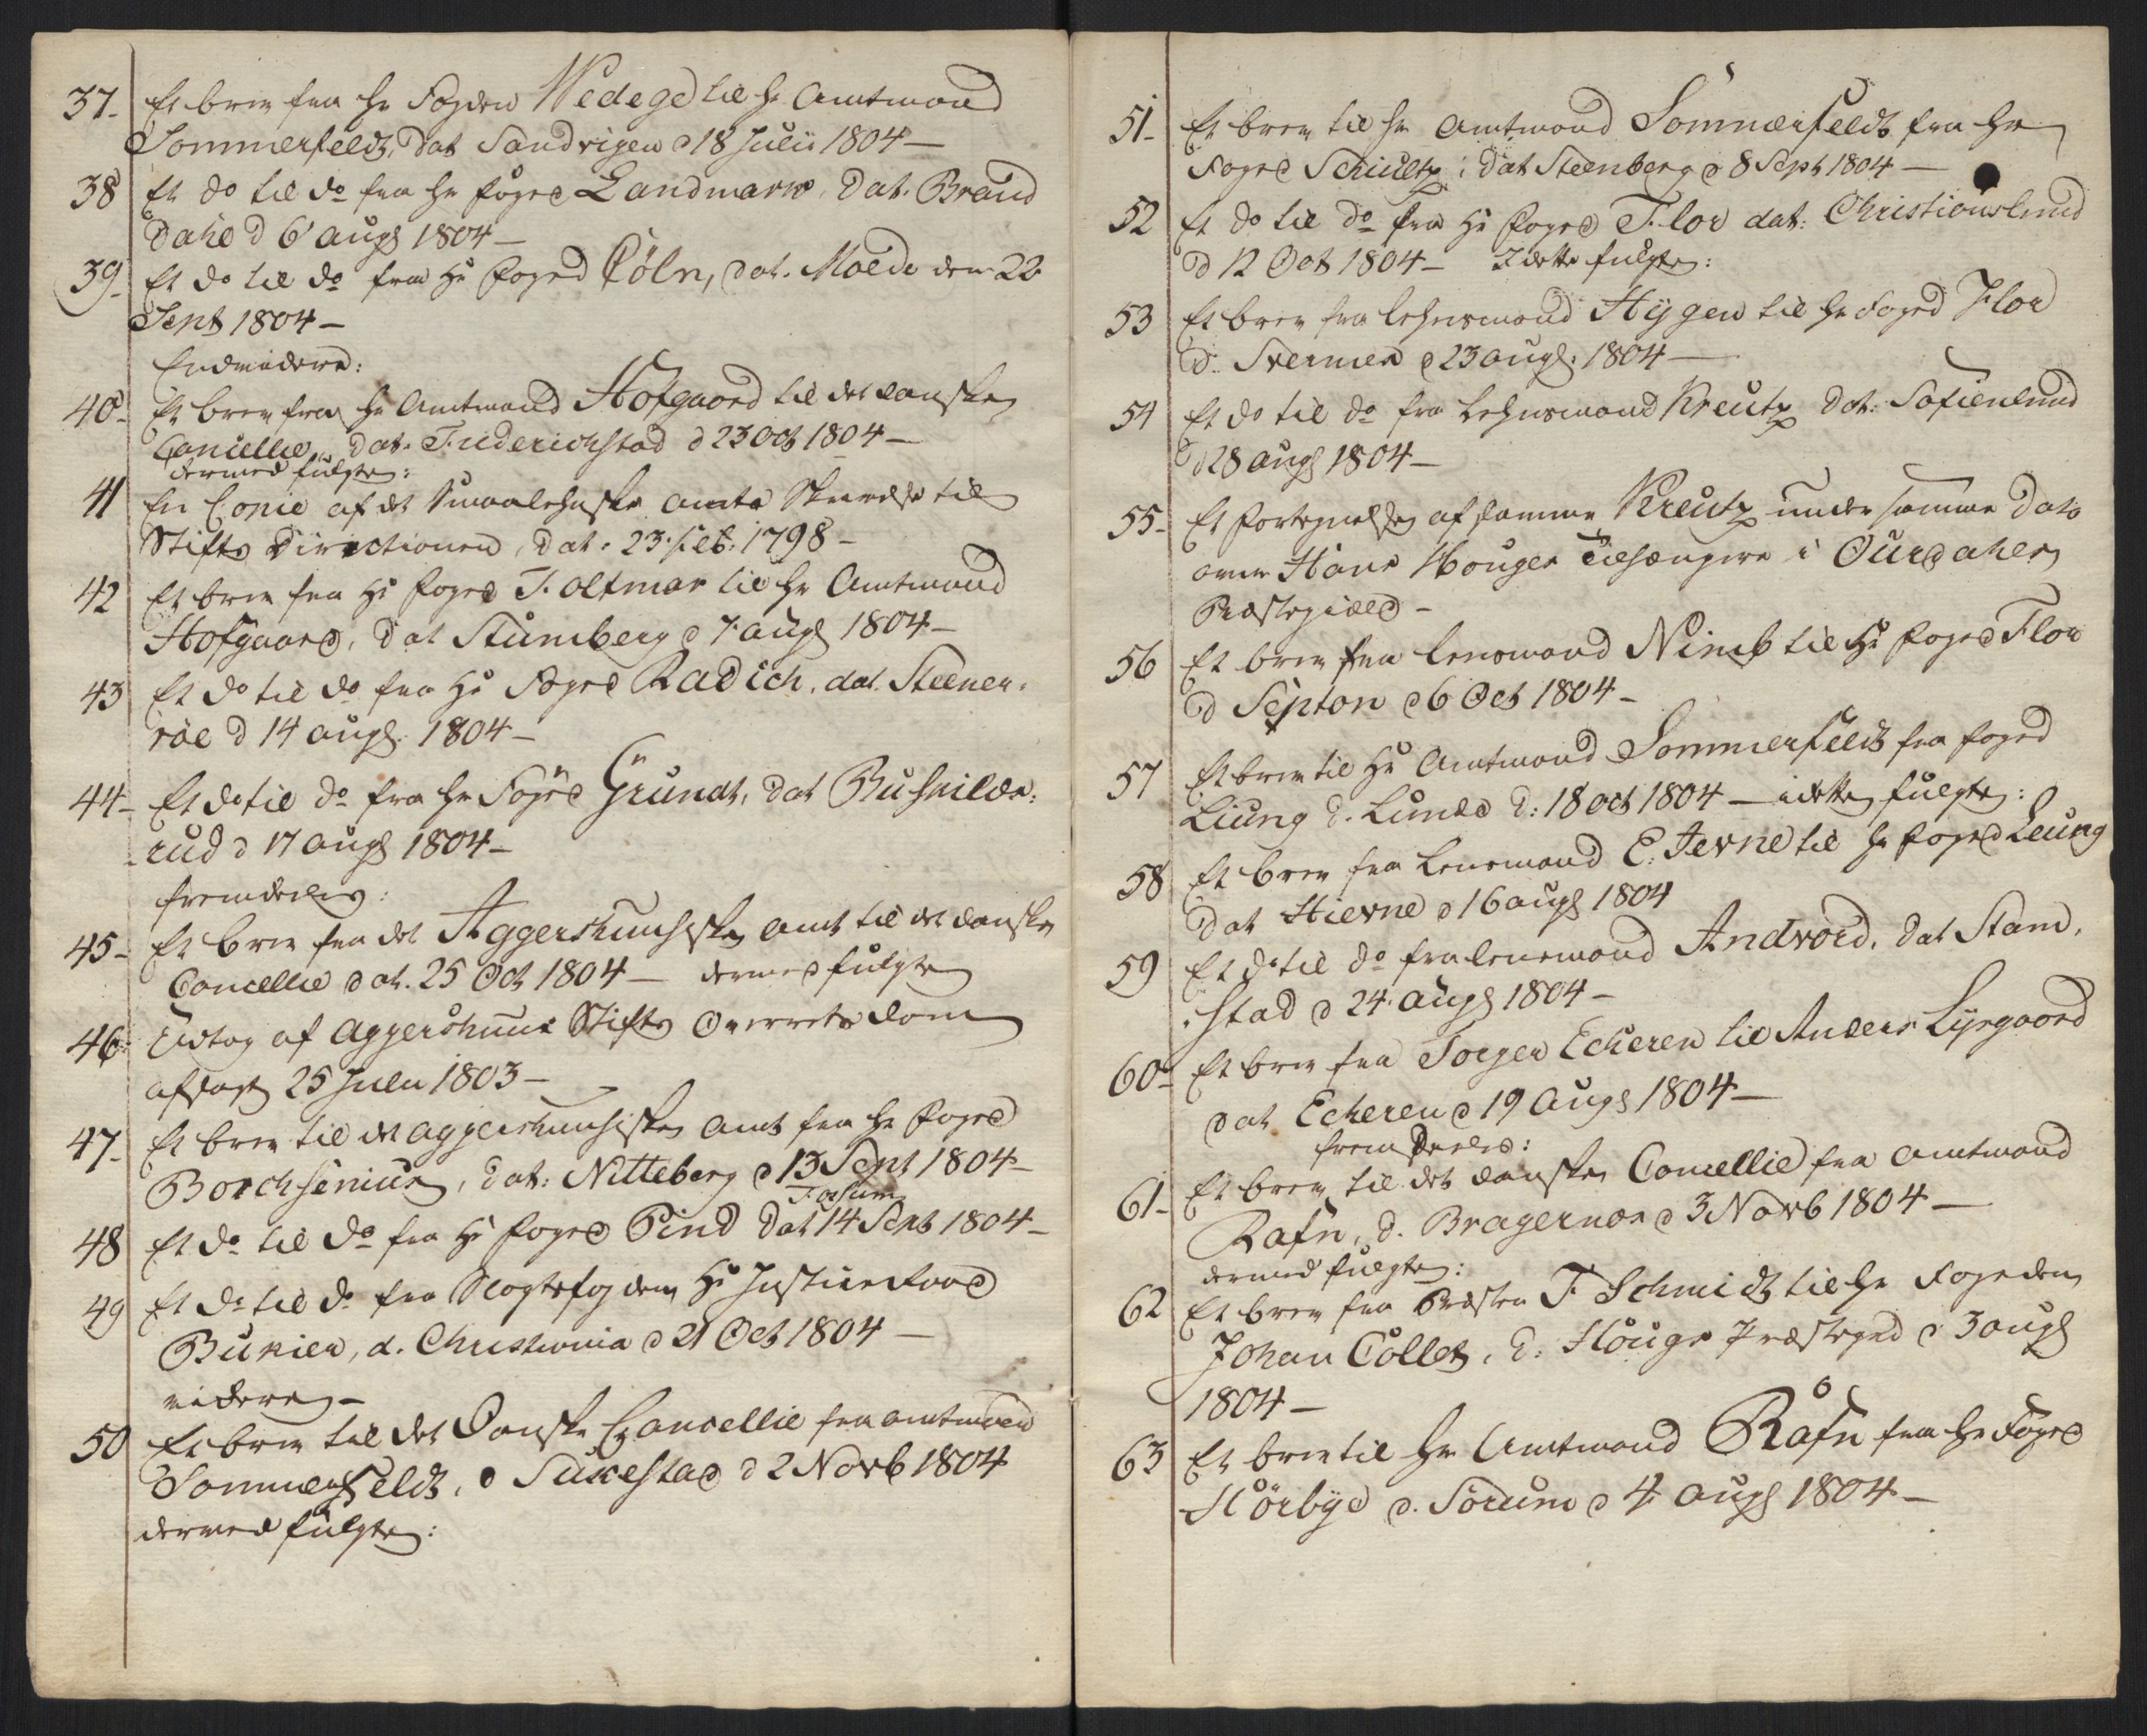 37. Et brev fra Hr Fogden Wedege til Hr Amtmand
Sommerfeldt, Dat Sandvigen d 18 Julii 1804 —
38 Et do til do fra Hr foged Landmark, Dat. Brand
Dahl d 6 augs 1804 —
39 Et do til do fra Hr foged Cöln, dat. Moede den 22
Sept 1804 —
Endvidere:
40. Et brev fra Hr Amtmand Hofgaard til det danske
Cancellie, Dat. Friderichstad d 23 Oct 1804 —
dermed fulgte:
41 En Copie af det Smaalehnske amts Skrivelse til
Stifts Directionen, Dat. 23. feb. 1798 —
42 Et brev fra Hr foged Foltmar til Hr Amtmand
Hofgaard, Dat Stumberg d 7. augs 1804 —
43 Et do til do fra Hr Foged Radich, dat. Steener-
röe d 14 augs. 1804 —
44 — Et do til do fra Hr Foged Grundt, Dat Buskilde-
rud d 17 augs 1804 —
fremdeles:
45 — Et brev fra det Aggershuusiske Amt til det danske
Cancellie dat. 25 Oct 1804 — dermed fulgte
46 Udtog af Aggershuus Stifts Overrets dom
afsagt 25 Julii 1803 —
47 — Et brev til det aggershuusiske Amt fra Hr foged
Borchsenius, Dat: Nitteberg d 13 Sept 1804 —
Fossum
48 Et do til do fra Hr foged Pind Dat 14 Sept 1804 —
49 Et do til do fra Slogtsfogden Hr Justitsraad
Bukier, d. Christiania d 21 Oct 1804 —
videre —
50 Et brev til det Danske Cancellie fra amtmand
Sommerfeldt, d Sukestad d 2 Novb 1804
dermed fulgte:
51 — Et brev til Hr Amtmand Sommerfeldt fra Hr
Foged Schultz; Dat Steenberg d 8 Sept 1804 —
52 Et do til do fra Hr foged Flor dat: Christianslund
d 12 Oct 1804 — I dette fulgte:
53 Et brev fra Lehnsmand Hygen til Hr Foged Flor
d. Svermer d 23 augs. 1804 —
54 Et do til do fra Lehnsmand Kreutz Dat: Sofienlund
d 28 augs 1804 —
55 — Et fortegnelse af samme Kreutz under samme Dato
over Hans Houges Tilhængere i Ourdahls
Præstegield —
56 Et brev fra Lensmand Nimb til Hr foged Flor
d Septon d 6 Oct 1804 —
57 Et brev til Hr Amtmand Sommerfeldt fra foged
Liung d. Lunde d: 18 Oct 1804 — i dette fulgte:
58 Et brev fra Lensmand E. Jevne til Hr foged Leung
Dat Hievne d 16 augs 1804
59 Et do til do fra Lensmand Andvord, Dat Stam-
stad d 24. augs 1804 —
60 — Et brev fra Torger Echeren til Anders Lysgaard
dat Echeren d 19 Augs 1804 —
fremdeeles:
61 — Et brev til det danske Cancellie fra Amtmand
Rafn, d. Bragernæs d 3 Novb 1804 —
dermed fulgte:
62 Et brev fra Præsten F Schmidt til Hr Fogeden
Johan Collet, d: Houge Præstegrd d 3 augs
1804 —
63 Et brev til Hr Amtmand Rafn fra Hr Foged
Hörbye d. Sörum d 4 augs 1804 —